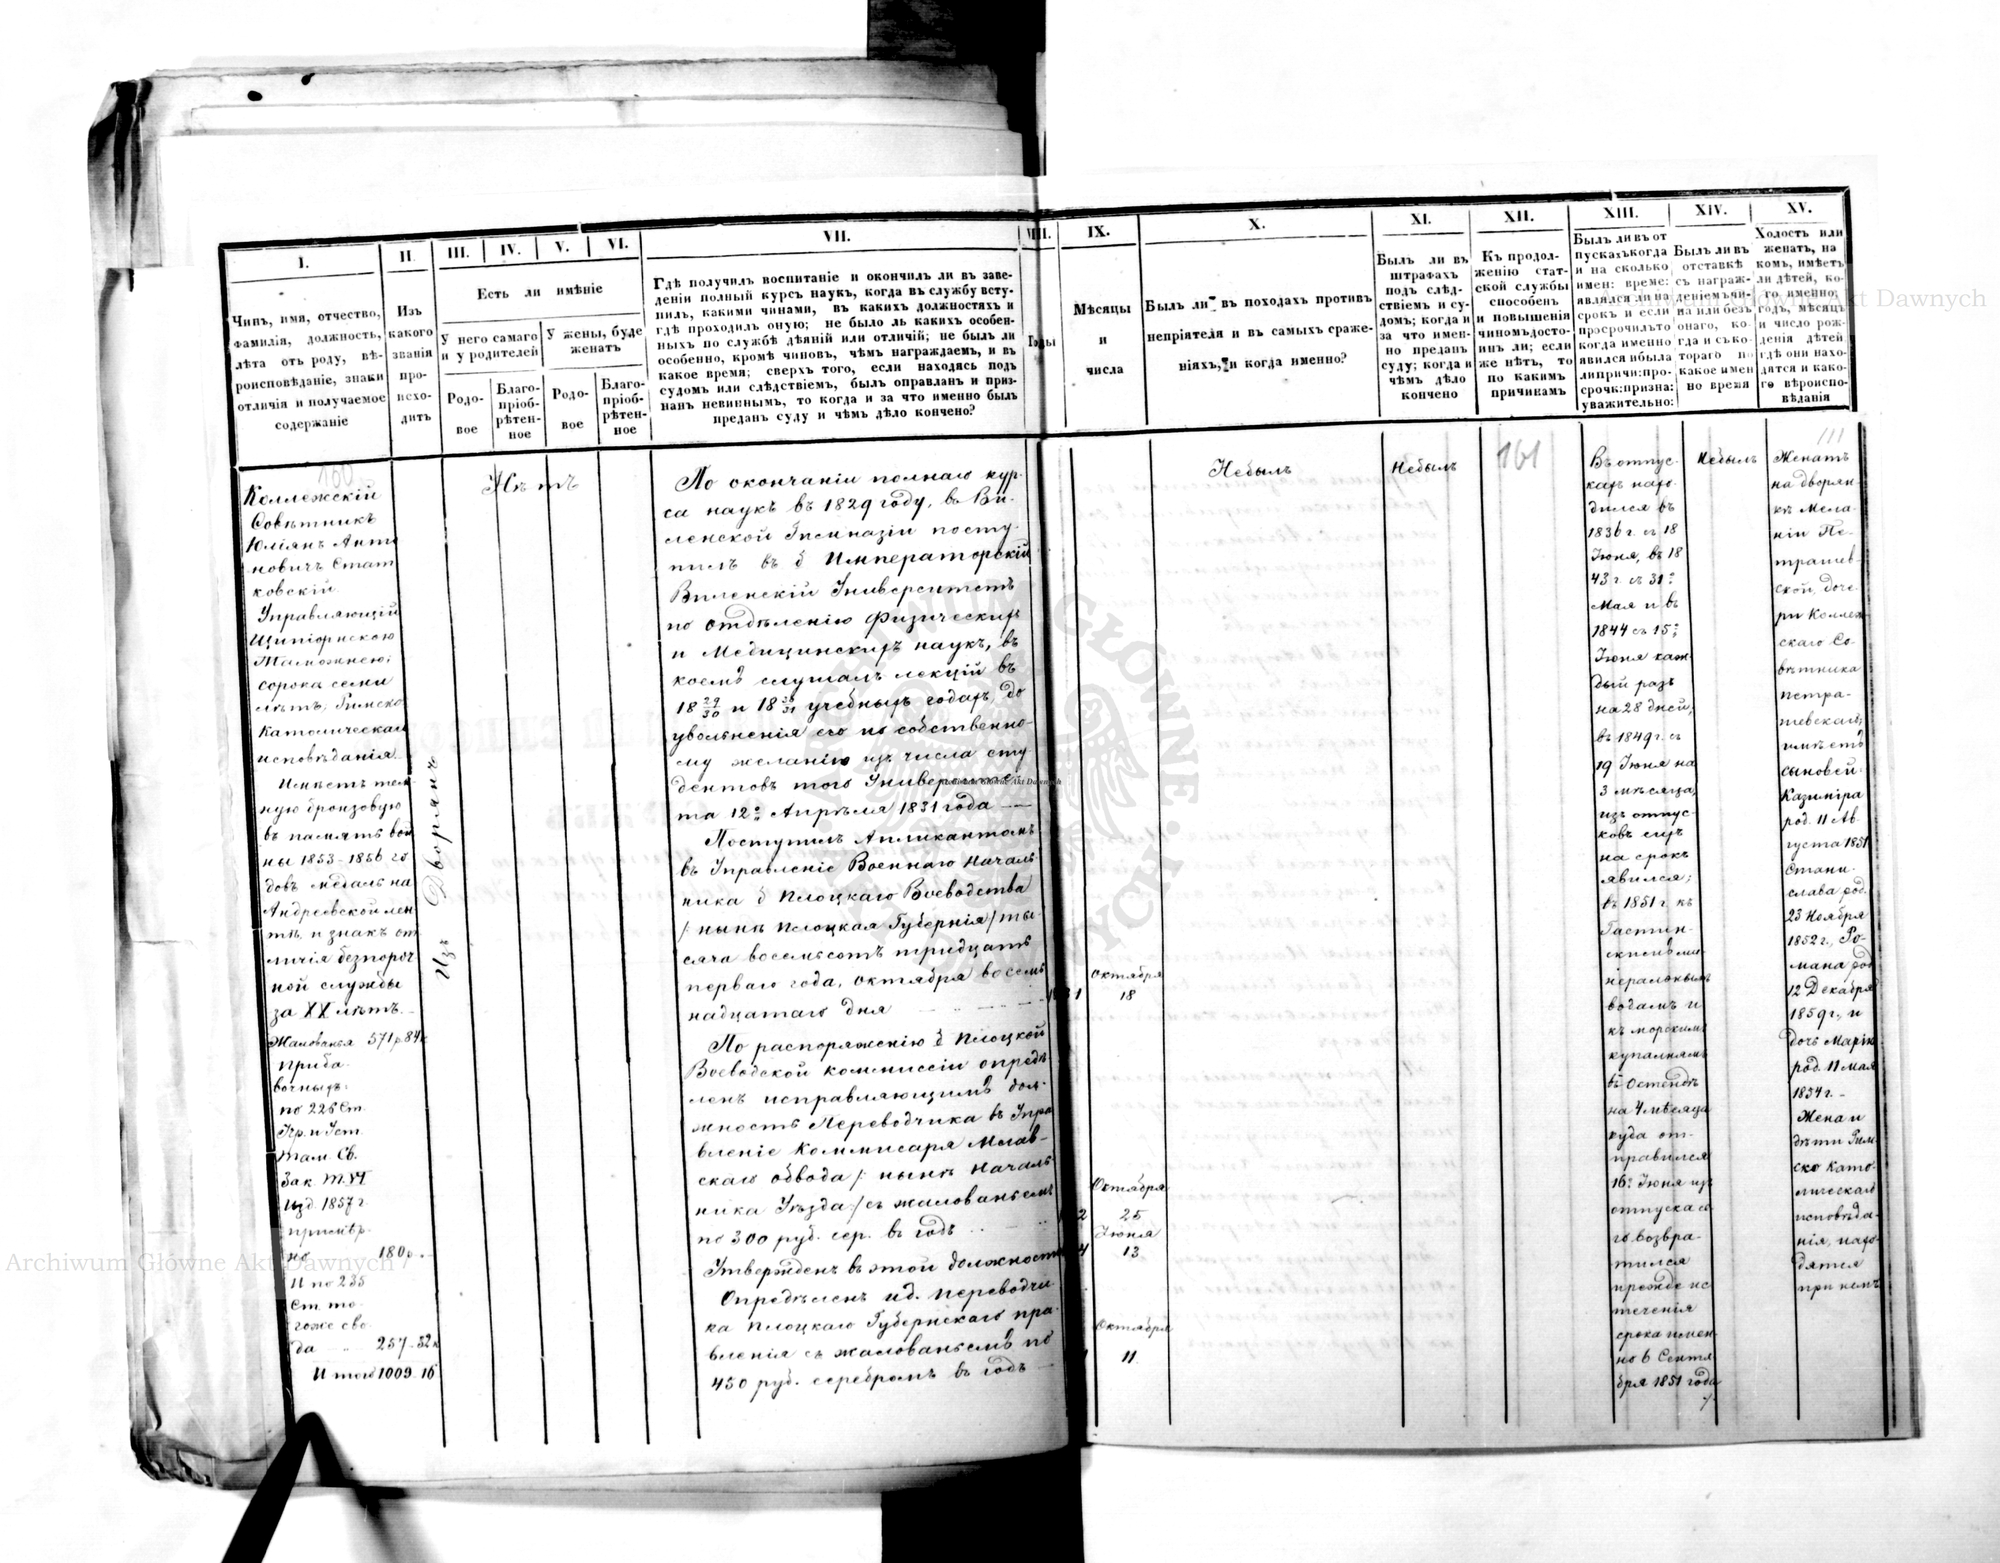 I.
II.
III.
IV.
V.
VI.
VII.
VIII.
IX.
X.
XI.
XII.
XIII.
XIV.
XV.
Чинъ, имя, отчество,
фамилія, должность,
лѣта отъ роду, вѣ-
роисповѣданіе, знаки
отличія и получаемое
содержаніе
Изъ
какого
званія
про-
исхо-
дитъ
Есть ли имѣніе
У него самаго
и у родителей
У жены, буде
женатъ
Родо-
вое
Благо-
пріоб-
рѣтен-
ное
Родо-
вое
Благо-
пріоб-
рѣтен-
ное
Гдѣ получилъ воспитаніе и окончилъ ли въ заве-
деніи полный курсъ наукъ, когда въ службу всту-
пилъ, какими чинами, въ какихъ должностяхъ и
гдѣ проходилъ оную; не было ль какихъ особен-
ныхъ по службѣ дѣяній или отличій; не былъ ли
особенно, кромѣ чиновъ, чѣмъ награждаемъ, и въ
какое время; сверхъ того, если находясь подъ
судомъ или слѣдствіемъ, былъ оправданъ и приз-
нанъ невиннымъ, то когда и за что именно былъ
преданъ суду и чѣмъ дѣло кончено?
Годы
Мѣсяцы
и
числа
Былъ ли въ походахъ противъ
непріятеля и въ самыхъ сраже-
ніяхъ, и когда именно?
Былъ ли въ
штрафахъ
подъ слѣд-
ствіемъ и су-
домъ; когда и
за что имен-
но преданъ
суду; когда и
чѣмъ дѣло
кончено
Къ продол-
женію стат-
ской службы
способенъ
и повышенія
чиномъ досто-
инъ ли; если
же нѣтъ, то
по какимъ
причинамъ
Былъ ли въ от
пускахъ когда
и на сколько
имен: время:
являлся ли на
срокъ и если
просрочилъ то
когда именно
явился и была
ли причи: про-
сроч: призна:
уважительно:
Былъ ли въ
отставкѣ
съ награж-
деніемъ чи-
на или безъ
онаго, ко-
гда и съ ко-
тораго по
какое имен
но время
Холостъ или
женатъ, на
комъ, имѣетъ
ли дѣтей, ко-
го именно;
годъ, мѣсяцъ
и число рож-
денія дѣтей
гдѣ они нахо-
дятся и како-
го вѣроиспо-
вѣданія
160
Коллежскій
Совѣтникъ
Юліянъ Анто
новичъ Стат
ковскій.
Управляющій
Щипіорнскою
Таможнею;
сорока семи
лѣтъ; Римско
Католическаго
исповѣданія.
Имѣетъ тем-
ную бронзовую
въ память вой
ны 1853-1856 го
довъ медаль на
Андреевской лен
тѣ, и знакъ от
личія безпороч
ной службы
за XX лѣтъ.
Жалованья 571 р. 84 к
Приба
вочныхъ:
по 226 Ст.
Пр. и Уст
Там. Св.
Зак. т. VI
изд. 1857 г.
примѣр-
но 180 р.
И по 235
Ст. то
гоже сво
да 257-32 к
Итого 1009-16
Изъ Дворянъ
Нѣтъ
По окончаніи полнаго кур-
са наукъ въ 1829 году, въ Ви-
ленской Гимназіи посту-
пилъ въ б. Императорскій
Виленскій Университетъ
по отдѣленію Физическихъ
и Медицинскихъ наукъ, въ
коемъ слушалъ лекцій въ
18 29/30 и 18 30/31 учебныхъ годахъ, до
увольненія его по собственно-
му желанію изъ числа сту-
дентовъ того Университе-
та 12го Апрѣля 1831 года —
Поступилъ Апликантомъ
въ Управленіе Военнаго Началь-
ника б. Плоцкаго Воеводства
/: нынѣ Плоцкая Губернія :/ ты-
сяча восемьсотъ тридцать
перваго года, октября восем-
надцатаго дня
По распоряженію б. Плоцкой
Воеводской Коммиссіи опредѣ-
ленъ исправляющимъ дол-
жность Переводчика въ Упра
вленіе Коммисара Млав-
скаго обвода /: нынѣ Началь-
ника Уѣзда :/ съ жалованьемъ
по 300 руб. сер. въ годъ
Утвержденъ въ этой должности
Опредѣленъ и.д. Переводчи-
ка Плоцкаго Губернскаго пра-
вленія съ жалованьемъ по
450 руб. серебромъ въ годъ —
31
Октября
18
2
Октября
25
4
Іюня
13
Октября
11
Небылъ
Небылъ
161
Въ отпус-
кахъ нахо-
дился въ
1836 г. съ 18
Іюня, въ 18
43 г. съ 31го
Мая и въ
1844 съ 15го
Іюня каж-
дый разъ
на 28 дней;
въ 1849 г. съ
19 Іюня на
3 мѣсяца,
изъ отпус-
ковъ сихъ
на срокъ
явился;
въ 1851 г. къ
Гастин-
скимъ ми-
неральнымъ
водамъ и
къ морскимъ
купальнямъ
въ Остенде
на 4 мѣсяца
куда от-
правился
16го Іюня изъ
отпуска се
го возвра-
тился
прежде ис
теченія
срока имен-
но 6 Сентя
бря 1851 года
Небылъ
111
Женатъ
на дворян-
кѣ Мела-
ніи Пе-
трашев-
ской, доче-
ри Коллеж
скаго Со-
вѣтника
Петра-
шевскаго;
имѣетъ
сыновей.
Казиміра
род. 11 Ав-
густа 1851
Стани-
слава род.
23 Ноября
1852 г., Ро-
мана род
12 Декабря
1859 г., и
дочь Марію
род. 11 Мая
1854 г. -
Жена и
дѣти Рим-
ско Като-
лическаго
исповѣда-
нія, нахо-
дятся
при немъ
Archiwum Główne Akt Dawnych
Archiwum Główne Akt Dawnych
Archiwum Główne Akt Dawnych
ARCHIWUM GŁÓWNE AKT DAWNYCH